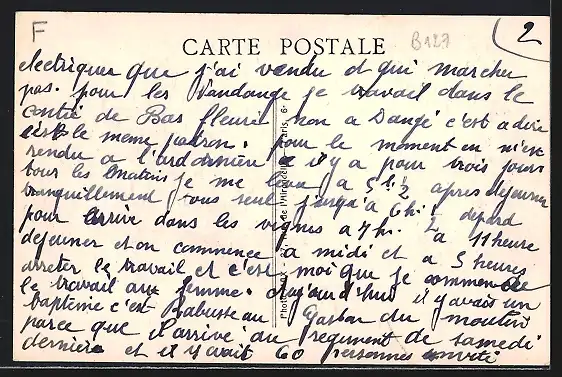 F
B127
2
CARTE POSTALE
electriques que j'ai vendu et qui marche
pas. pour les Vandange je travail dans le
contré de Bas fleurie non a Dangé c'est a dire
le meme patron. pour le moment on n'est
rendu a l'ardoisniere il y a pour trois jours
tous les matins je me leve a 5h 1/2 apres dejeuner
tranquillement tous seul jusqu'a 6h 1/2 depard
pour arrive dans les vignes a 7h. a 11 heure
dejeuner et on commence a midi et a 5 heures
arreter le travail et c'est moi que je commende
le travail aux femme. Aujourd'hui il y avais un
bapteme c'est Babusteau Gaston du moulin
parce que il arrive au regiment de samedi
derniere et il y avait 60 personnes invité